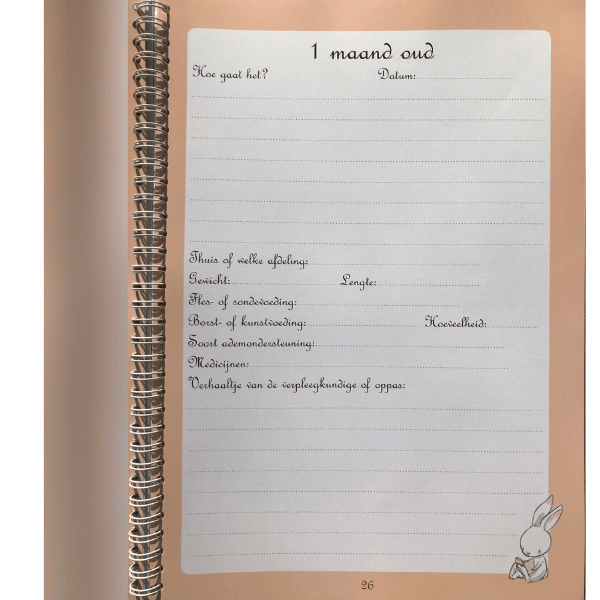 1 maand oud
Hoe gaat het? Datum:
Thuis of welke afdeling:
Gewicht: Lengte:
Fles- of sondevoeding:
Borst- of kunstvoeding: Hoeveelheid:
Soort ademondersteuning:
Medicijnen:
Verhaaltje van de verpleegkundige of oppas:
26